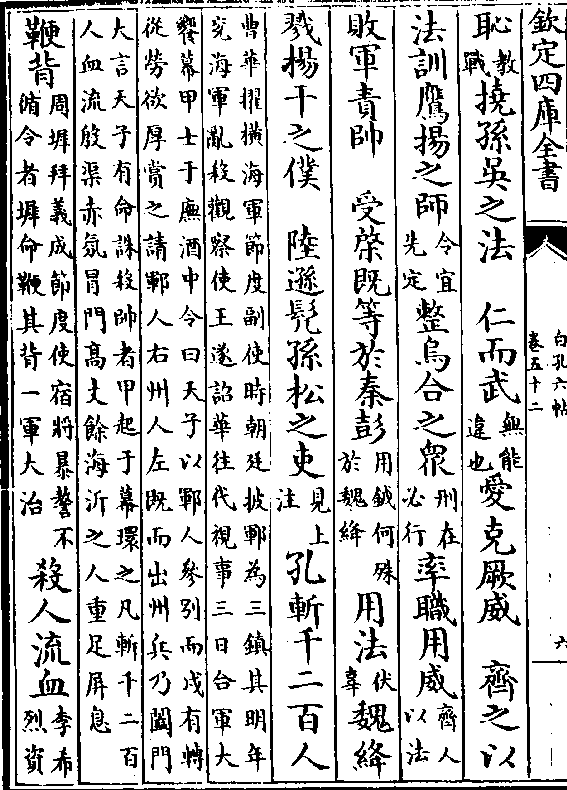 欽定四庫全書
白孔六帖
卷五十二
六
恥教戰撓孫吳之法　仁而武無能違也愛克厥威　齊之以
法訓鷹揚之師令宜先定整烏合之眾刑在必行率職用威齊人以法
敗軍責帥　受棨既等於秦彭用鉞何殊於魏絳用法伏辜魏絳
戮揚干之僕　陸遜髡孫松之吏見上注孔斬千二百人
曹華擢橫海軍節度副使時朝廷披鄆為三鎮其明年
兗海軍亂殺觀察使王遂詔華往代視事三日台軍大
饗幕甲士于廡酒中令曰天子以鄆人參別而戍有轉
從勞欲厚賞之請鄆人右州人左既而出州兵乃闔門
大言天子有命誅殺帥者甲起于幕環之凡斬千二百
人血流殷渠赤氛冒門高丈餘海沂之人重足屏息
鞭背周墀拜義成節度使宿將暴謷不脩令者墀命鞭其背一軍大治　殺人流血李希烈資